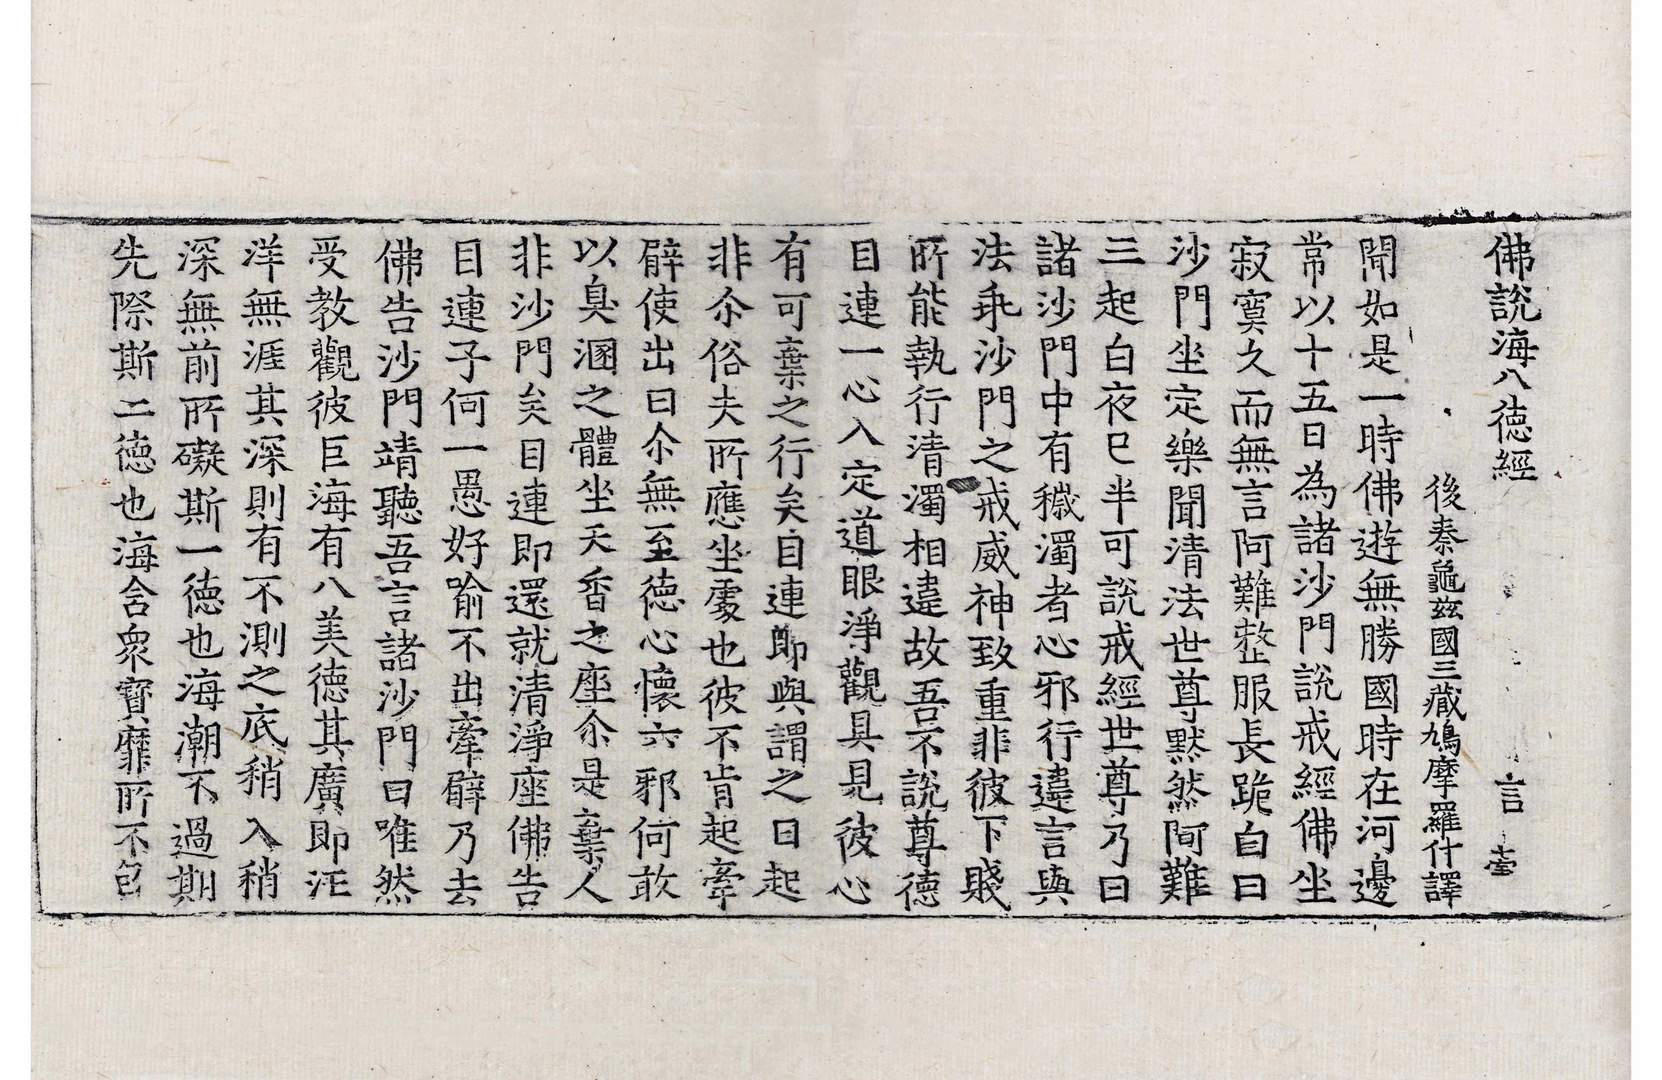 佛說海八德經 言 壹
後秦龜茲國三藏鳩摩羅什譯
聞如是一時佛遊無勝國時在河邊
常以十五日為諸沙門說戒經佛坐
寂寞久而無言阿難整服長跪白曰
沙門坐定樂聞清法世尊默然阿難
三起白夜已半可說戒經世尊乃曰
諸沙門中有穢濁者心邪行違言與
法乖沙門之戒威神致重非彼下賤
所能執行清濁相違故吾不說尊德
目連一心入定道眼淨觀具見彼心
有可棄之行矣目連即與謂之曰起
非尒俗夫所應坐處也彼不肯起牽
臂使出曰尒無至德心懷六邪何敢
以臭溷之體坐天香之座尒是棄人
非沙門矣目連即還就清淨座佛告
目連子何一愚好喻不出牽臂乃去
佛告沙門靖聽吾言諸沙門曰唯然
受教觀彼巨海有八美德其廣即汪
洋無涯其深則有不測之底稍入稍
深無前所礙斯一德也海潮不過期
先際斯二德也海含衆寶靡所不包